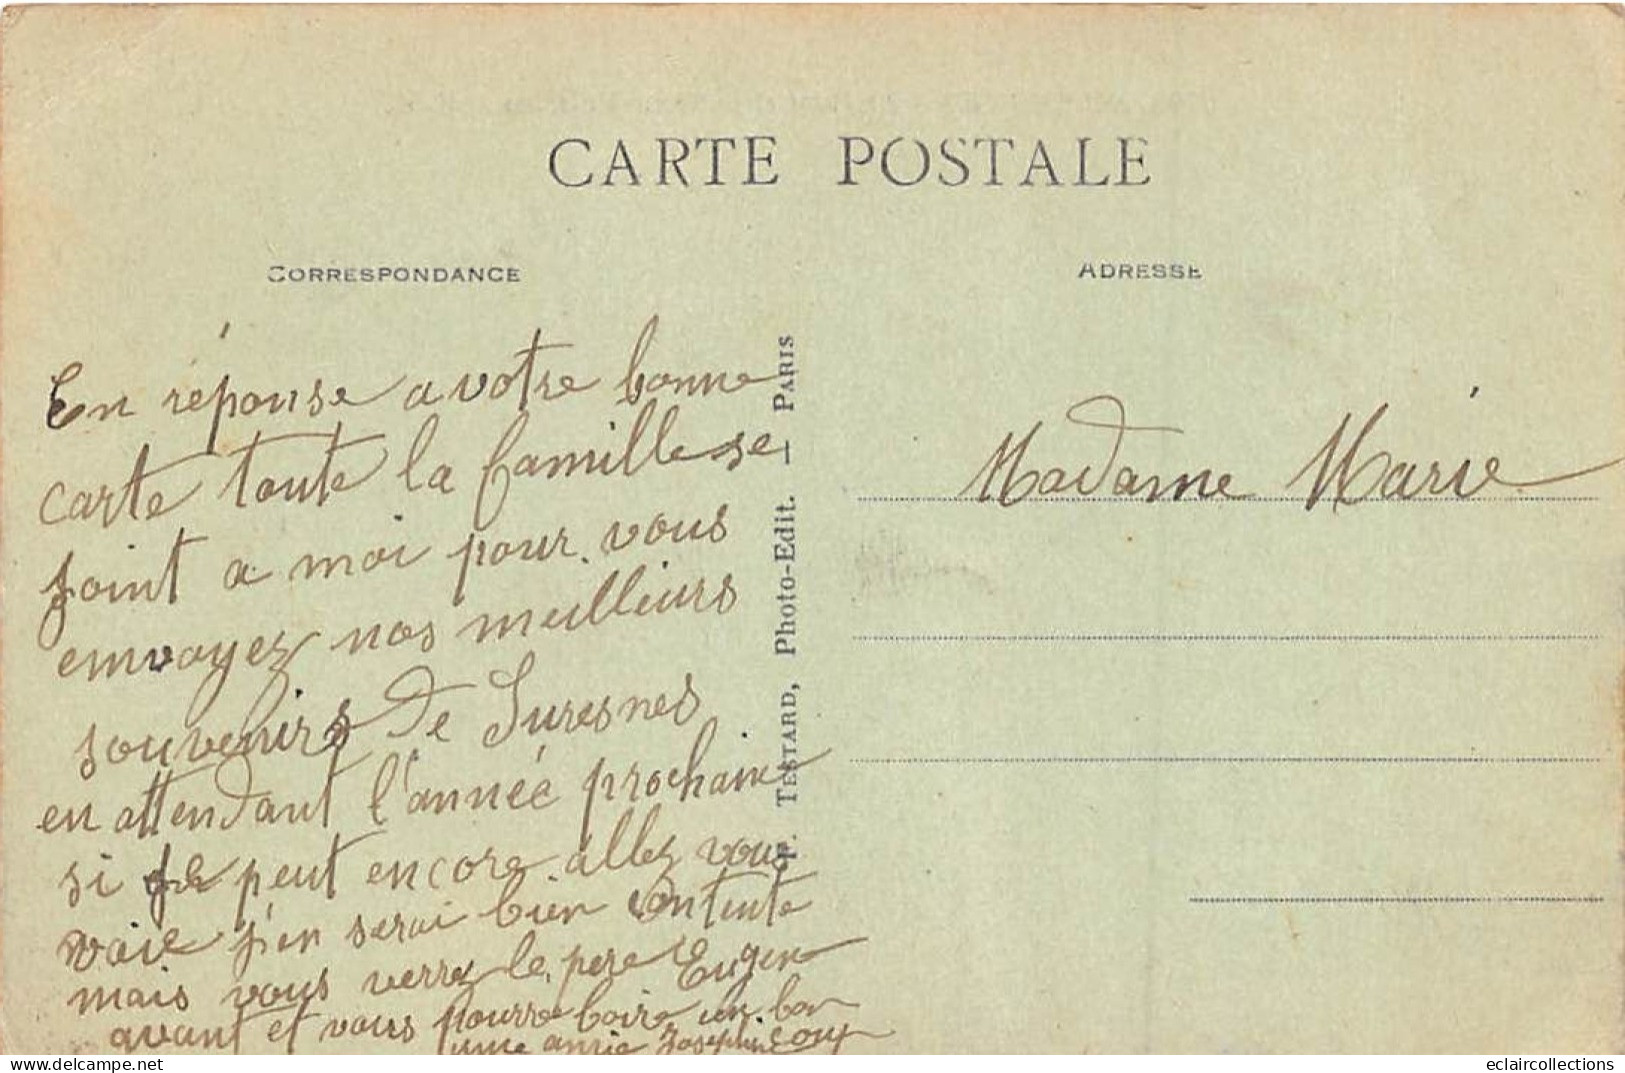 CARTE POSTALE
CORRESPONDANCE
ADRESSE
En réponse a votre bonne
carte toute la famille se
joint a moi pour vous
envoyez nos meilleurs
souvenirs de Suresnes
en attendant l'année prochaine
si je peut encore allez vous
voire j'en serai bien contente
mais vous verrez le pere Eugene
avant et vous pourre boire un bon
coup
une amie Josephine
Madame Marie
P. TESTARD, Photo-Edit. — PARIS
eclaircollections